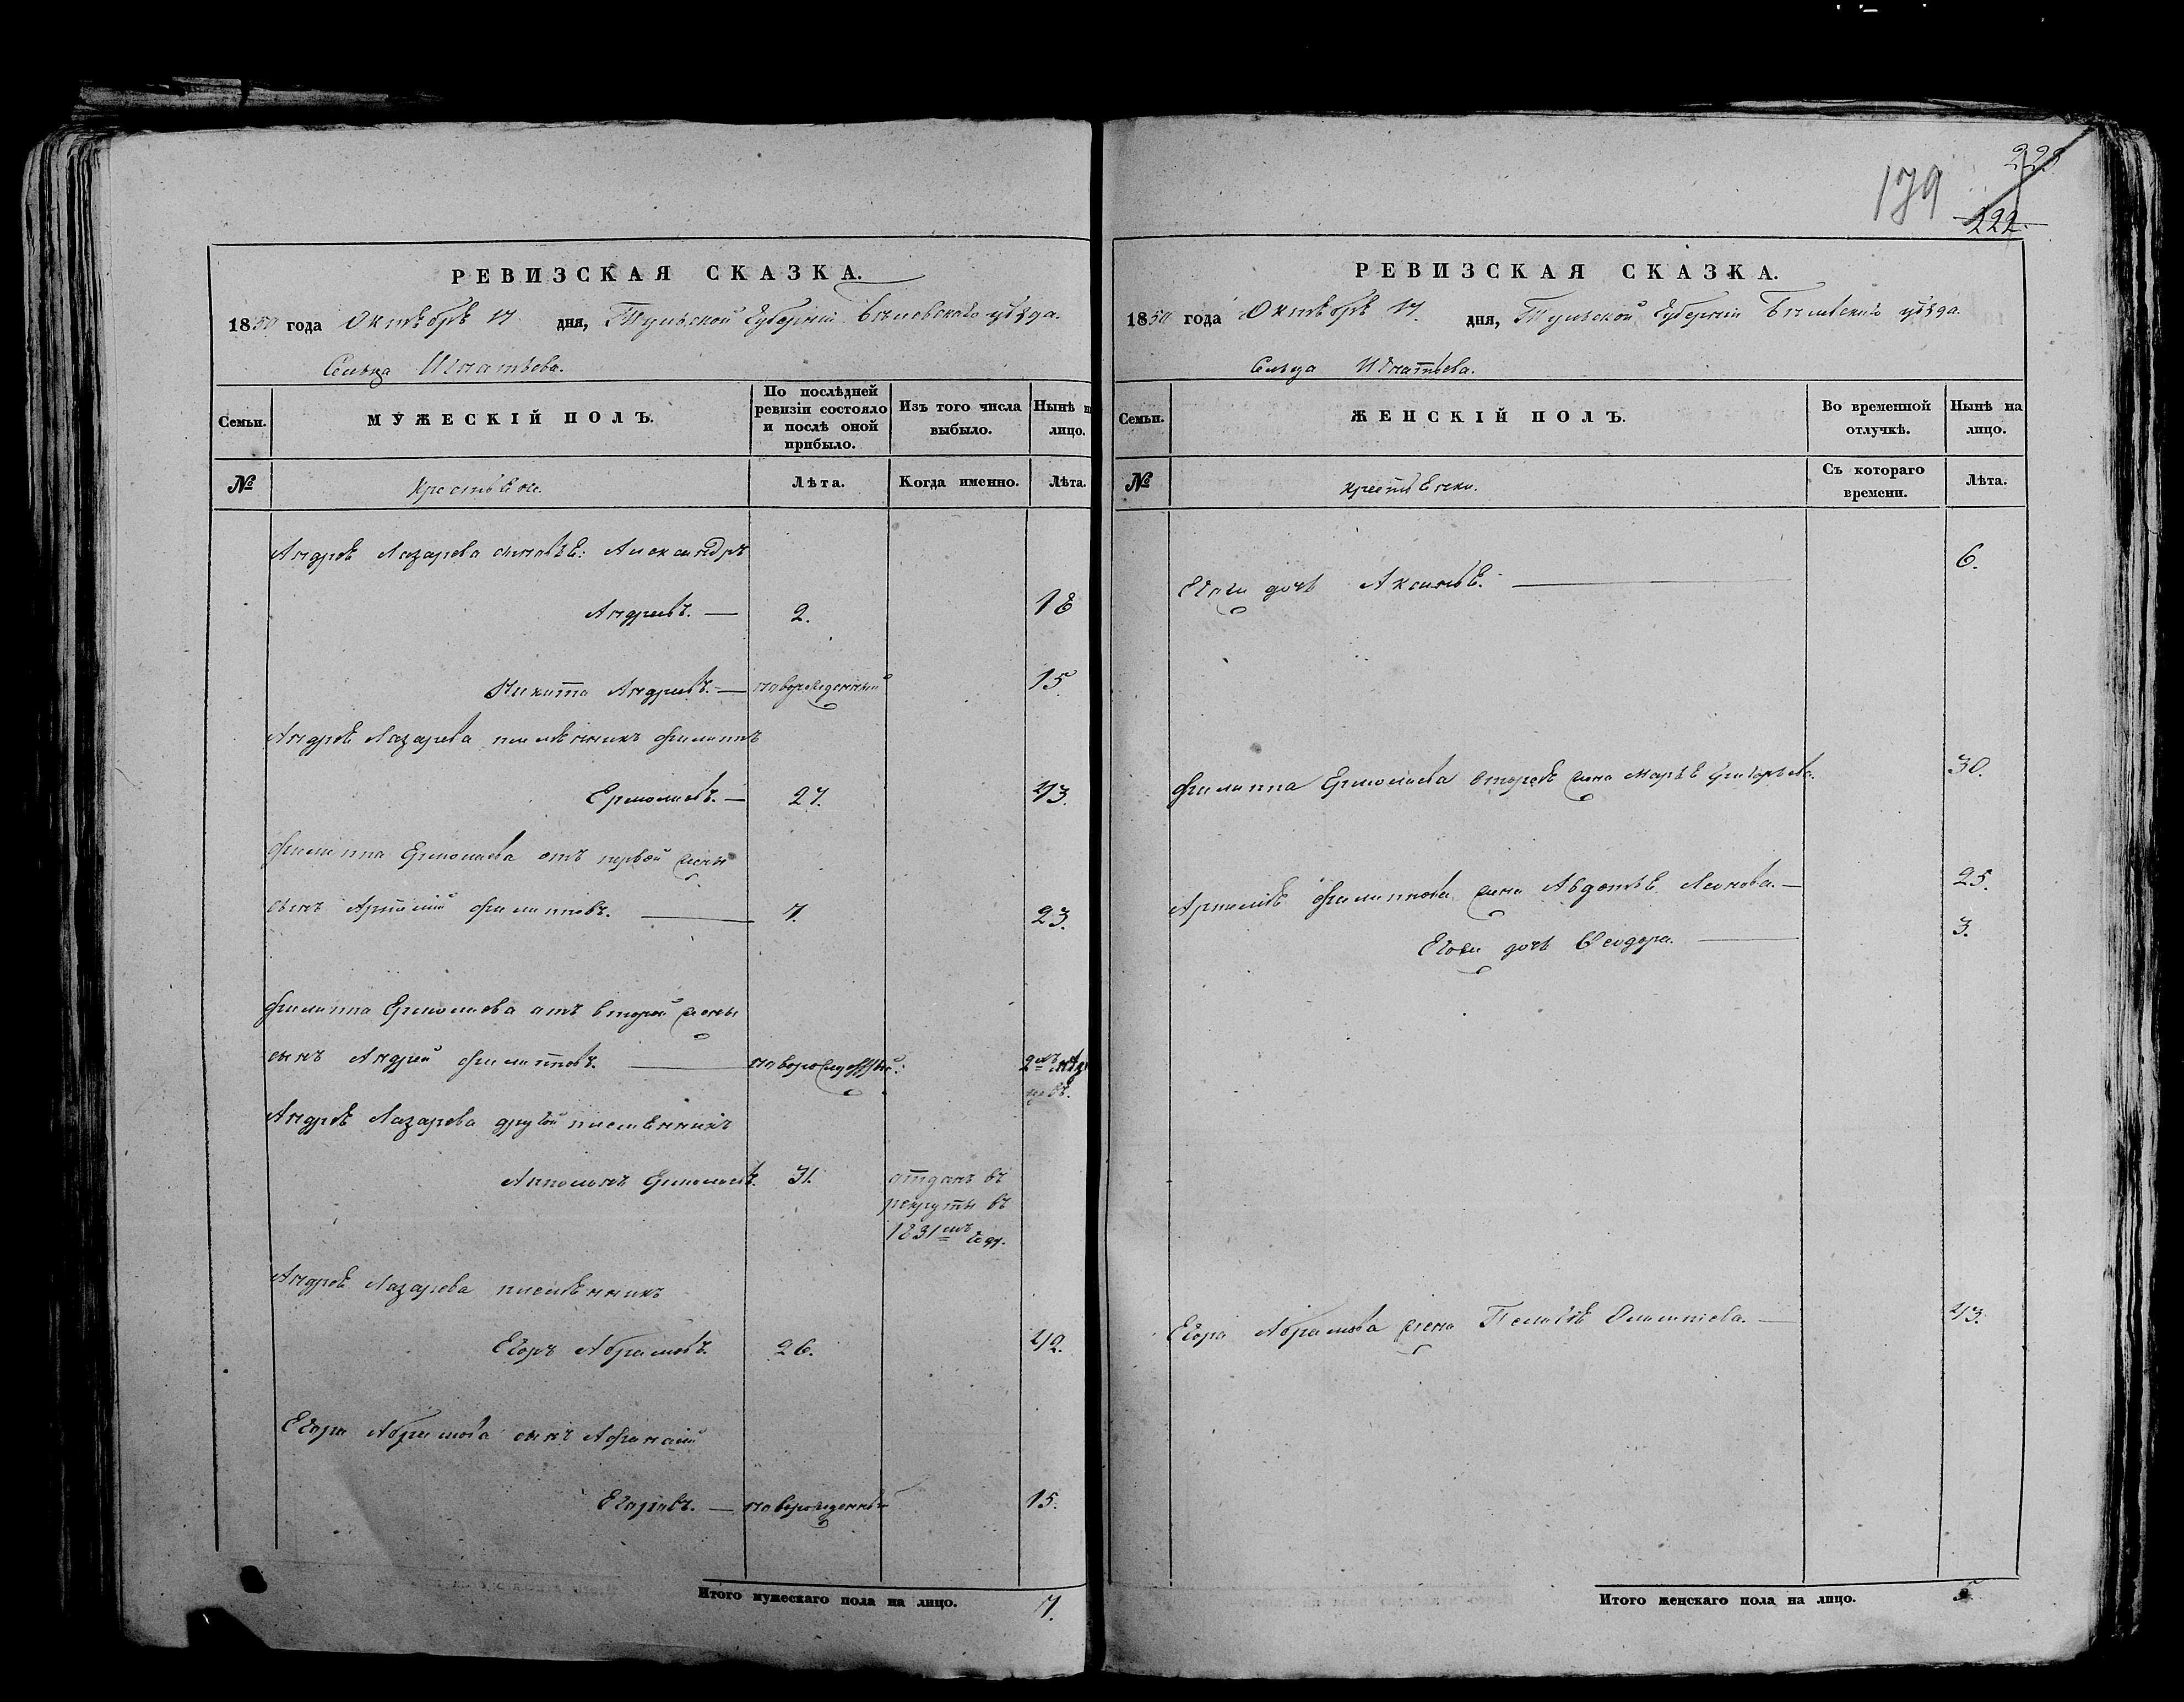 РЕВИЗСКАЯ СКАЗКА.
1850 года Октября 17 дня, Тульской Губернии Белевскаго уѣзда.
Сельца Игнатьева.
Семьи.
МУЖЕСКІЙ ПОЛЪ.
По послѣдней ревизіи состояло и послѣ оной прибыло.
Изъ того числа выбыло.
Нынѣ н лицо.
№
Крестьяне.
Лѣта.
Когда именно.
Лѣта.
Андрея Лазарева сыновья: Александръ
Андреевъ. — 2. 18
Никита Андреевъ. — новорожденный 15
Андрея Лазарева племянникъ Филиппъ
Ермолаевъ. — 27. 43.
Филиппа Ермолаева отъ первой жены
сынъ Артемій Филипповъ. — 7. 23.
Филиппа Ермолаева отъ второй жены
сынъ Андрей Филипповъ. — новорожденный.
Андрея Лазарева другой племянникъ
Ермолаевъ. 31. отданъ въ
рекруты въ
1831мъ году.
Андрея Лазарева племянникъ
Егоръ Абрамовъ. 26. 42.
Егора Абрамова сынъ Афанасій
Егоровъ. — новорожденный 15.
Итого мужескаго пола на лицо. 7.
179
222
РЕВИЗСКАЯ СКАЗКА.
1850 года Октября 17 дня, Тульской Губерніи Белевскаго уѣзда.
Сельца Игнатьева.
Семьи.
ЖЕНСКІЙ ПОЛЪ.
Во временной отлучкѣ.
Нынѣ на лицо.
№
Крестьянки.
Съ котораго времени.
Лѣта.
дочь Аксинья. — 6.
Филиппа Ермолаева вторая жена Марья Григорьева. 30.
Артемія Филиппова жена Авдотья Леонова. — 25.
дочь Ѳеодора. — 3.
Егора Абрамова жена Пелагея — 43.
Итого женскаго пола на лицо. 5